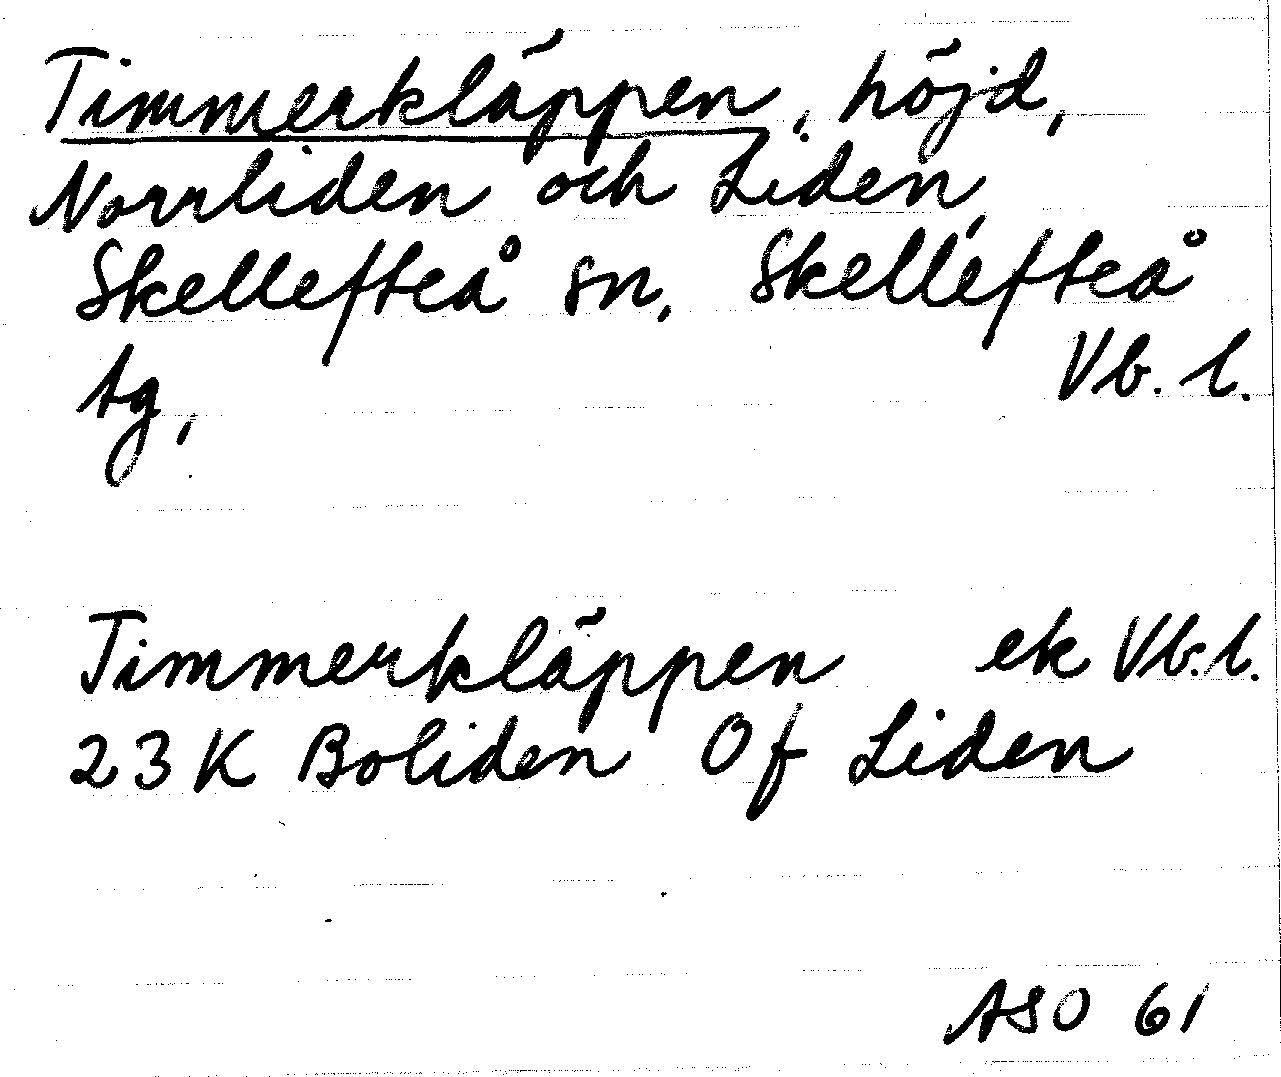 Timmerkläppen, höjd,
Norrliden och Liden,
Skellefteå sn, Skellefteå
tg, Vb. l.
Timmerkläppen ek Vb.l.
23 K Boliden Of Liden
ASO 61